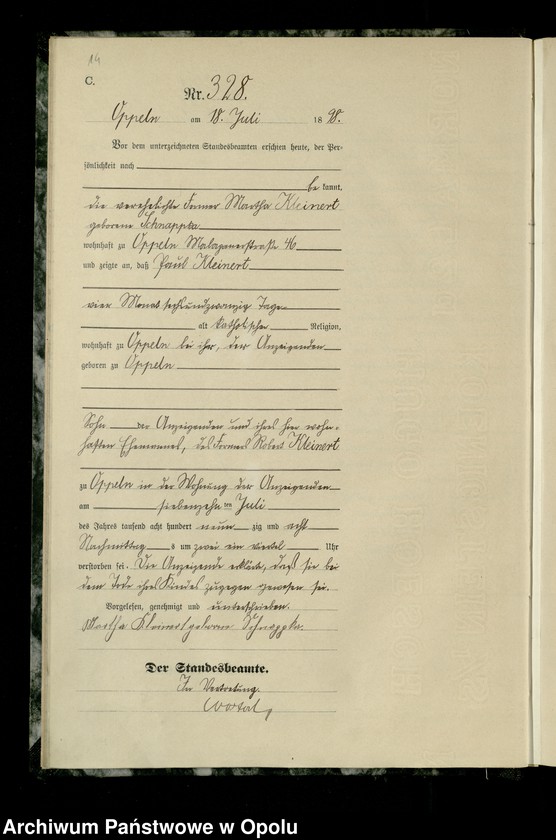 14
C.
Nr. 328.
Oppeln am 18. Juli 1898.
Vor dem unterzeichneten Standesbeamten erschien heute, der Per-
sönlichkeit nach
be kannt,
die verehelichte Former Martha Kleinert
geborene Schnappka
wohnhaft zu Oppeln Malapanerstraße 46
und zeigte an, daß Paul Kleinert
vier Monat sechsundzwanzig Tage
alt katholischer Religion,
wohnhaft zu Oppeln bei ihr, der Anzeigenden
geboren zu Oppeln
Sohn der Anzeigenden und ihres hier wohn-
haften Ehemannes, des Formers Robert Kleinert
zu Oppeln in der Wohnung der Anzeigenden
am siebenzehn ten Juli
des Jahres tausend acht hundert neun zig und acht
Nachmittag s um zwei ein viertel Uhr
verstorben sei. Die Anzeigende erklärte, daß sie bei
dem Tode ihres Kindes zugegen gewesen sei.
Vorgelesen, genehmigt und unterschrieben.
Martha Kleinert geborene Schnappka.
Der Standesbeamte.
In Vertretung.
Archiwum Państwowe w Opolu